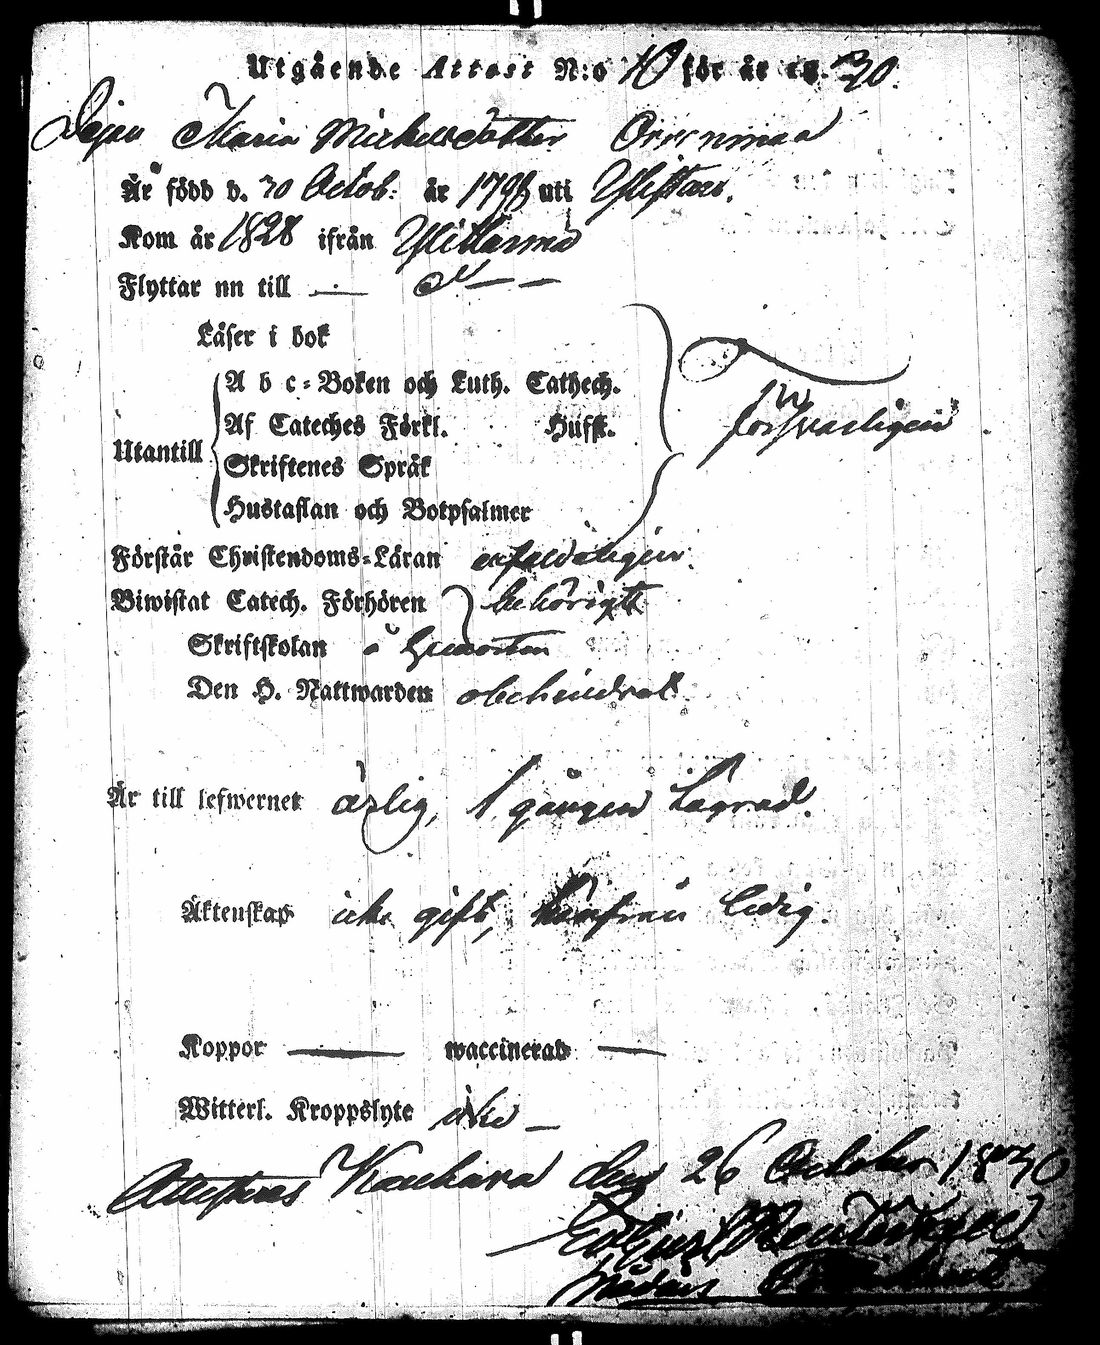 Utgående Attest N:o 10 för år 18 30.
Pigan Maria Michelsdotter
Är född d. 30 Octob: år 1798 uti Ylistaro.
Kom år 1828 ifrån Ylihärmä
Flyttar nu till
Läser i bok
A b c-Boken och Luth. Cathech.
Af Cateches Förkl. Husfl.
försvarligen
Utantill
Skriftenes Språk
Hustaflan och Botpsalmer
Förstår Christendoms-Läran enfaldeligen.
Biwistat Catech. Förhören behörigt
Skriftskolan å
Den H. Nattwarden obehindrat
Är till lefwernet ärlig, 1 gången lägrad.
Äktenskap icke gift, härifrån ledig.
Koppor — waccinerad —
Witterl. Kroppslyte icke —
Attesteras Kauhava den 26 October 1830